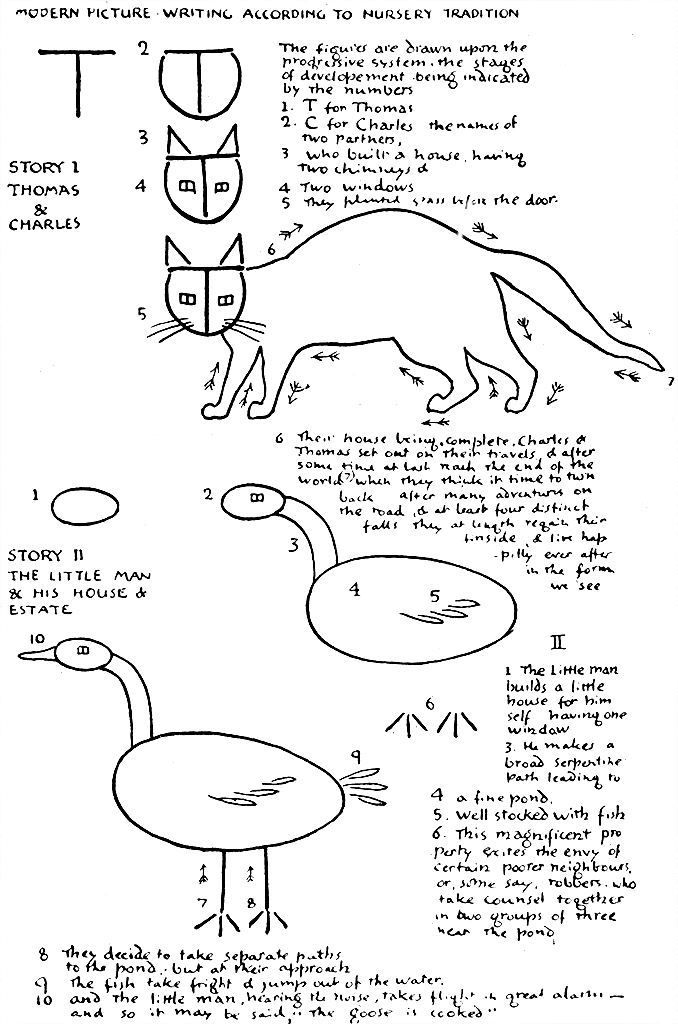 MODERN PICTURE-WRITING ACCORDING TO NURSERY TRADITION
2
The figures are drawn upon the
progressive system, the stages
of developement being indicated
by the numbers
1. T for Thomas
2. C for Charles the names of
two partners,
3 who built a house, having
two chimneys &
4 Two windows
5 They planted grass before the door.
3
4
STORY I
THOMAS
&
CHARLES
6
5
7
6 Their house being complete, Charles &
Thomas set out on their travels, & after
some time at last reach the end of the
world(7) when they think it time to turn
back after many adventures on
the road, & at least four distinct
falls they at length regain their
inside & live hap
-pily ever after
in the form
we see
1
2
3
4
5
STORY II
THE LITTLE MAN
& HIS HOUSE &
ESTATE
10
II
1 The Little man
builds a little
house for him
self having one
window
3. He makes a
broad serpentine
path leading to
4 a fine pond.
5. Well stocked with fish
6. This magnificent pro
perty exites the envy of
certain poorer neighbours,
or, some say, robbers. who
take counsel together
in two groups of three
near the pond
6
9
7
8
8 They decide to take separate paths
to the pond, but at their approach
9 The fish take fright & jump out of the water.
10 and the little man, hearing the noise, takes flight in great alarm —
and so it may be said, "The goose is cooked"